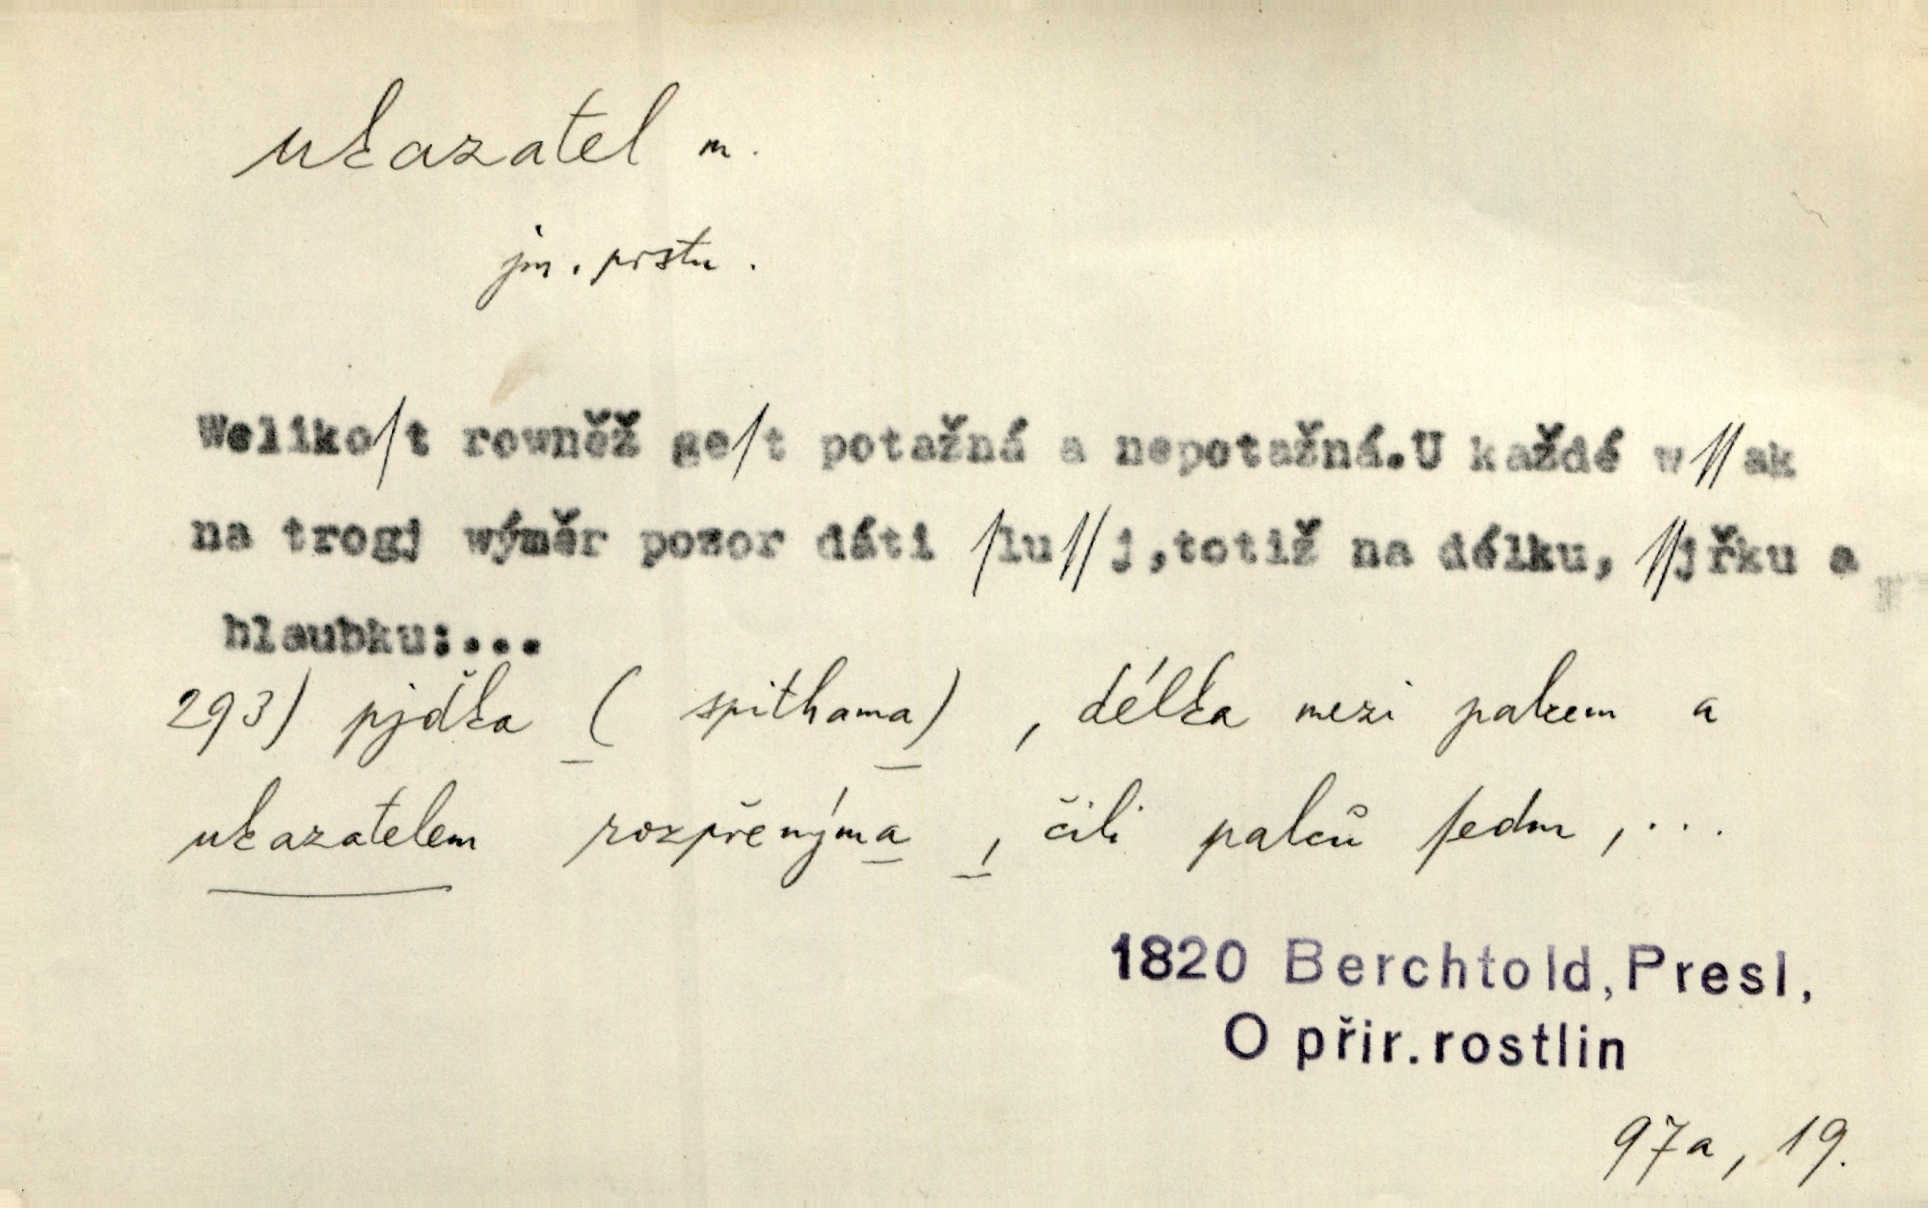 ukazatel m.
jm. prstu.
Welikoſt rowněž geſt potažná a nepotažná. U každé wſſak
na trogj wýměr pozor dáti ſluſſj, totiž na délku, ſſjřku a
hlaubku:...
293) pjďka (spithama), délka mezi palcem a
ukazatelem rozpřenýma, čili palců ſedm, ...
1820 Berchtold, Presl,
O přir. rostlin
97a, 19.